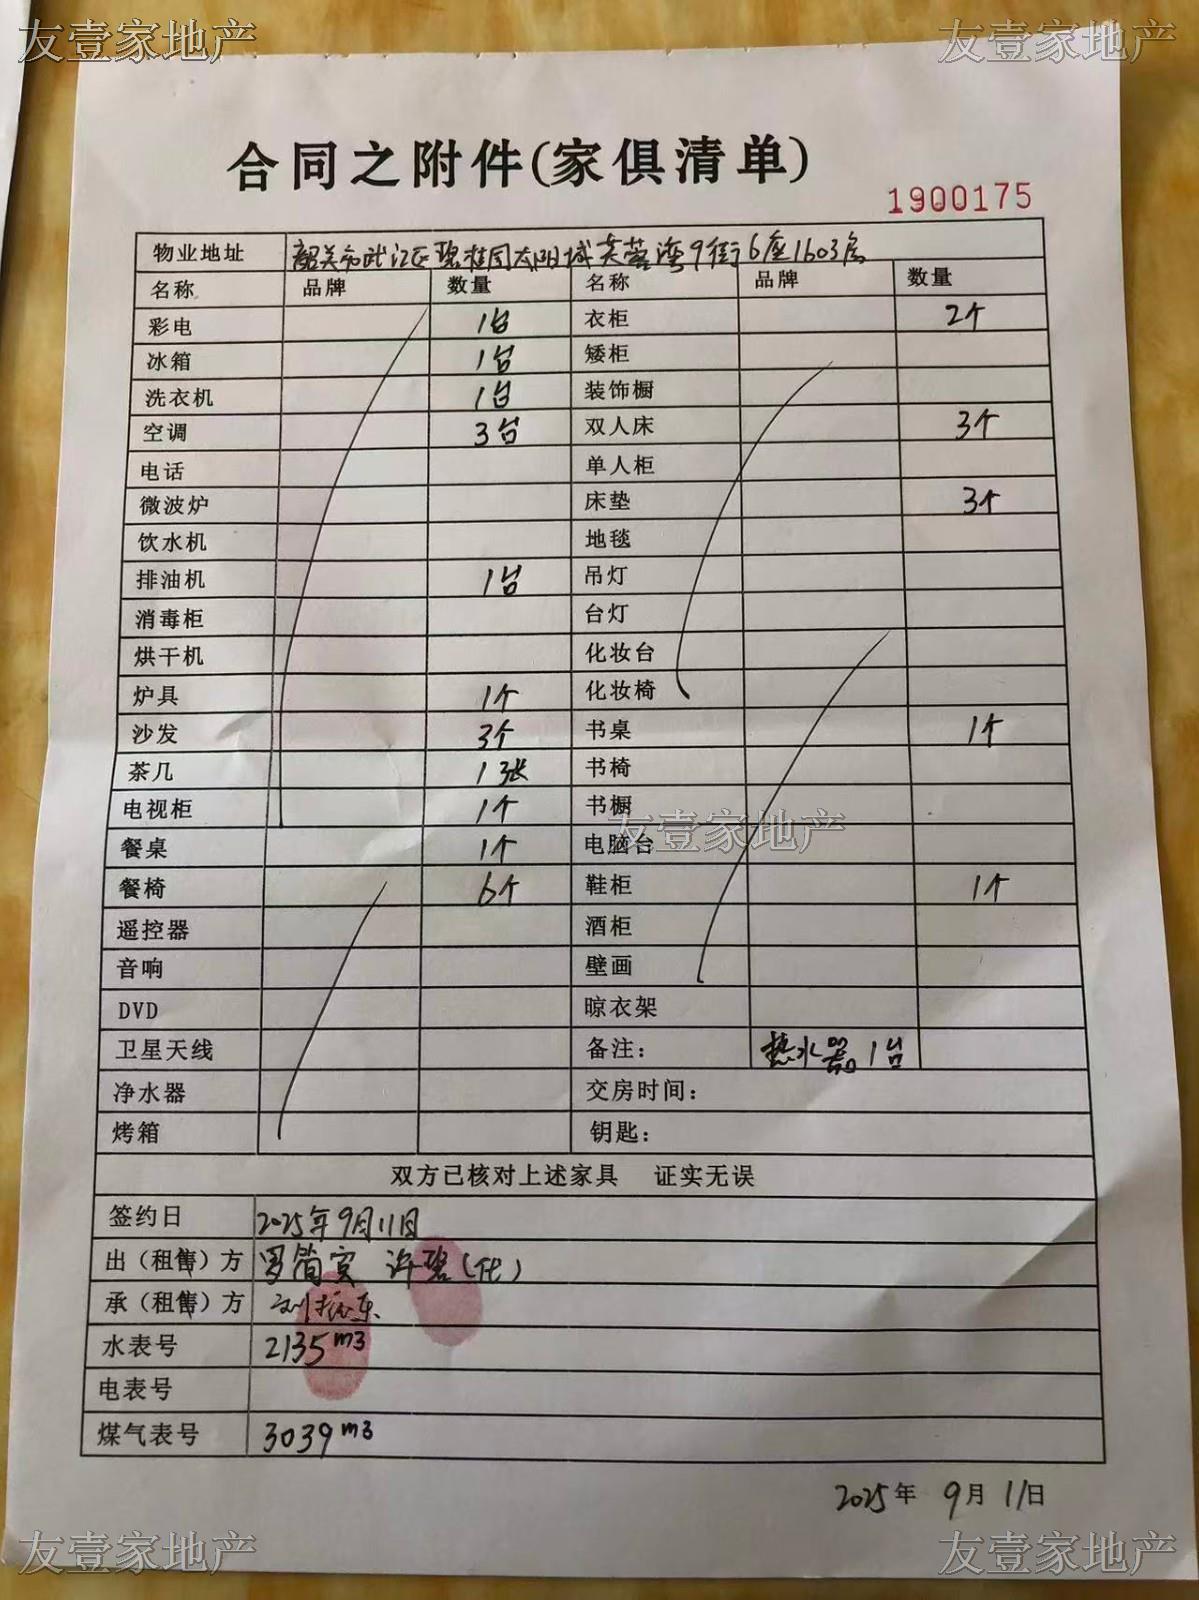 友壹家地产 友壹家地产
合同之附件(家俱清单)
1900175
物业地址 韶关市武江区碧桂园太阳城芙蓉湾9街6座1603房
名称 品牌 数量 名称 品牌 数量
彩电 1台 衣柜 2个
冰箱 1台 矮柜
洗衣机 1台 装饰橱
空调 3台 双人床 3个
电话 单人柜
微波炉 床垫 3个
饮水机 地毯
排油机 1台 吊灯
消毒柜 台灯
烘干机 化妆台
炉具 1个 化妆椅
沙发 3个 书桌 1个
茶几 1张 书椅
电视柜 1个 书橱
友壹家地产
餐桌 1个 电脑台
餐椅 6个 鞋柜 1个
遥控器 酒柜
音响 壁画
DVD 晾衣架
卫星天线 备注: 热水器1台
净水器 交房时间:
烤箱 钥匙:
双方已核对上述家具 证实无误
签约日 2025年9月11日
出(租售)方 罗 许碧(代)
承(租售)方 刘振东
水表号 2135m3
电表号
煤气表号 3039m3
2025年 9月 11日
友壹家地产 友壹家地产